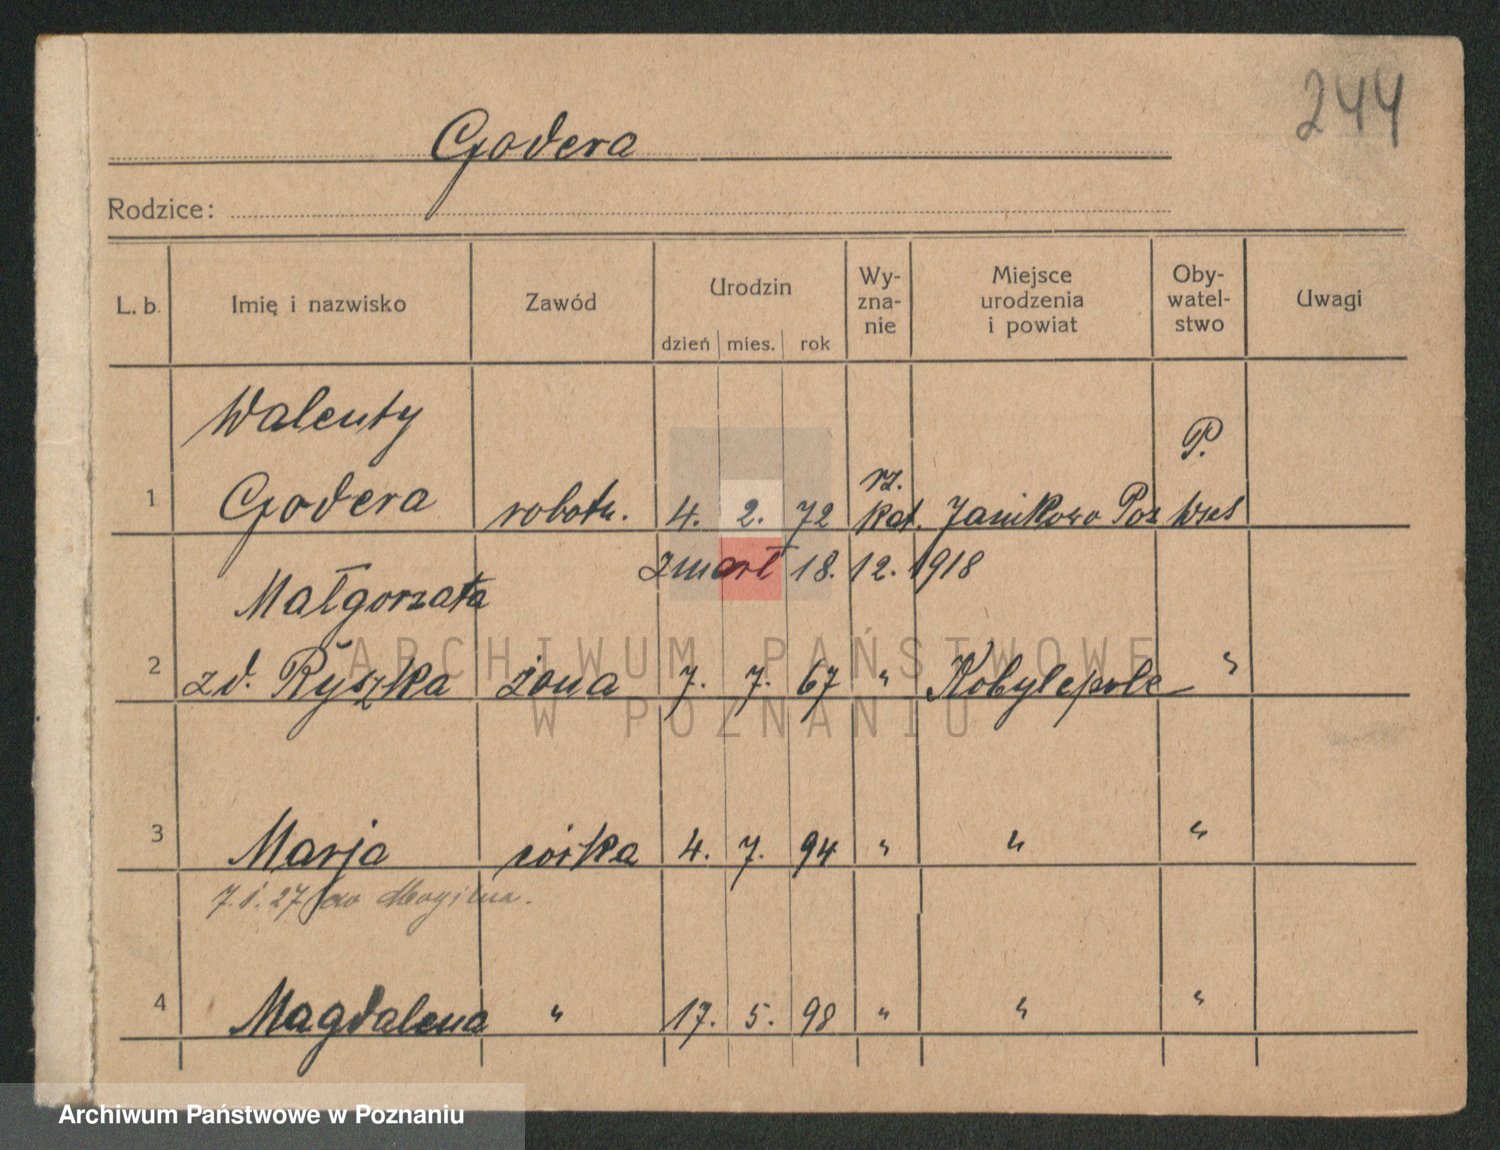 244
Godera
Rodzice:
L. b. Imię i nazwisko Zawód Urodzin dzień mies. rok Wy-zna-nie Miejsce urodzenia i powiat Oby-watel-stwo Uwagi
Walenty P.
1 Godera robotn. 4. 2. 72 rz. kat. Janikowo Poz Wsch
zmarł 18. 12. 1918
Małgorzata
2 zd. Ryszka żona 7. 7. 67 " Kobylepole "
ARCHIWUM PAŃSTWOWE
W POZNANIU
3 Marja córka 4. 7. 94 " " "
7.1.27 do Mogilna.
4 Magdalena " 17. 5. 98 " " "
Archiwum Państwowe w Poznaniu